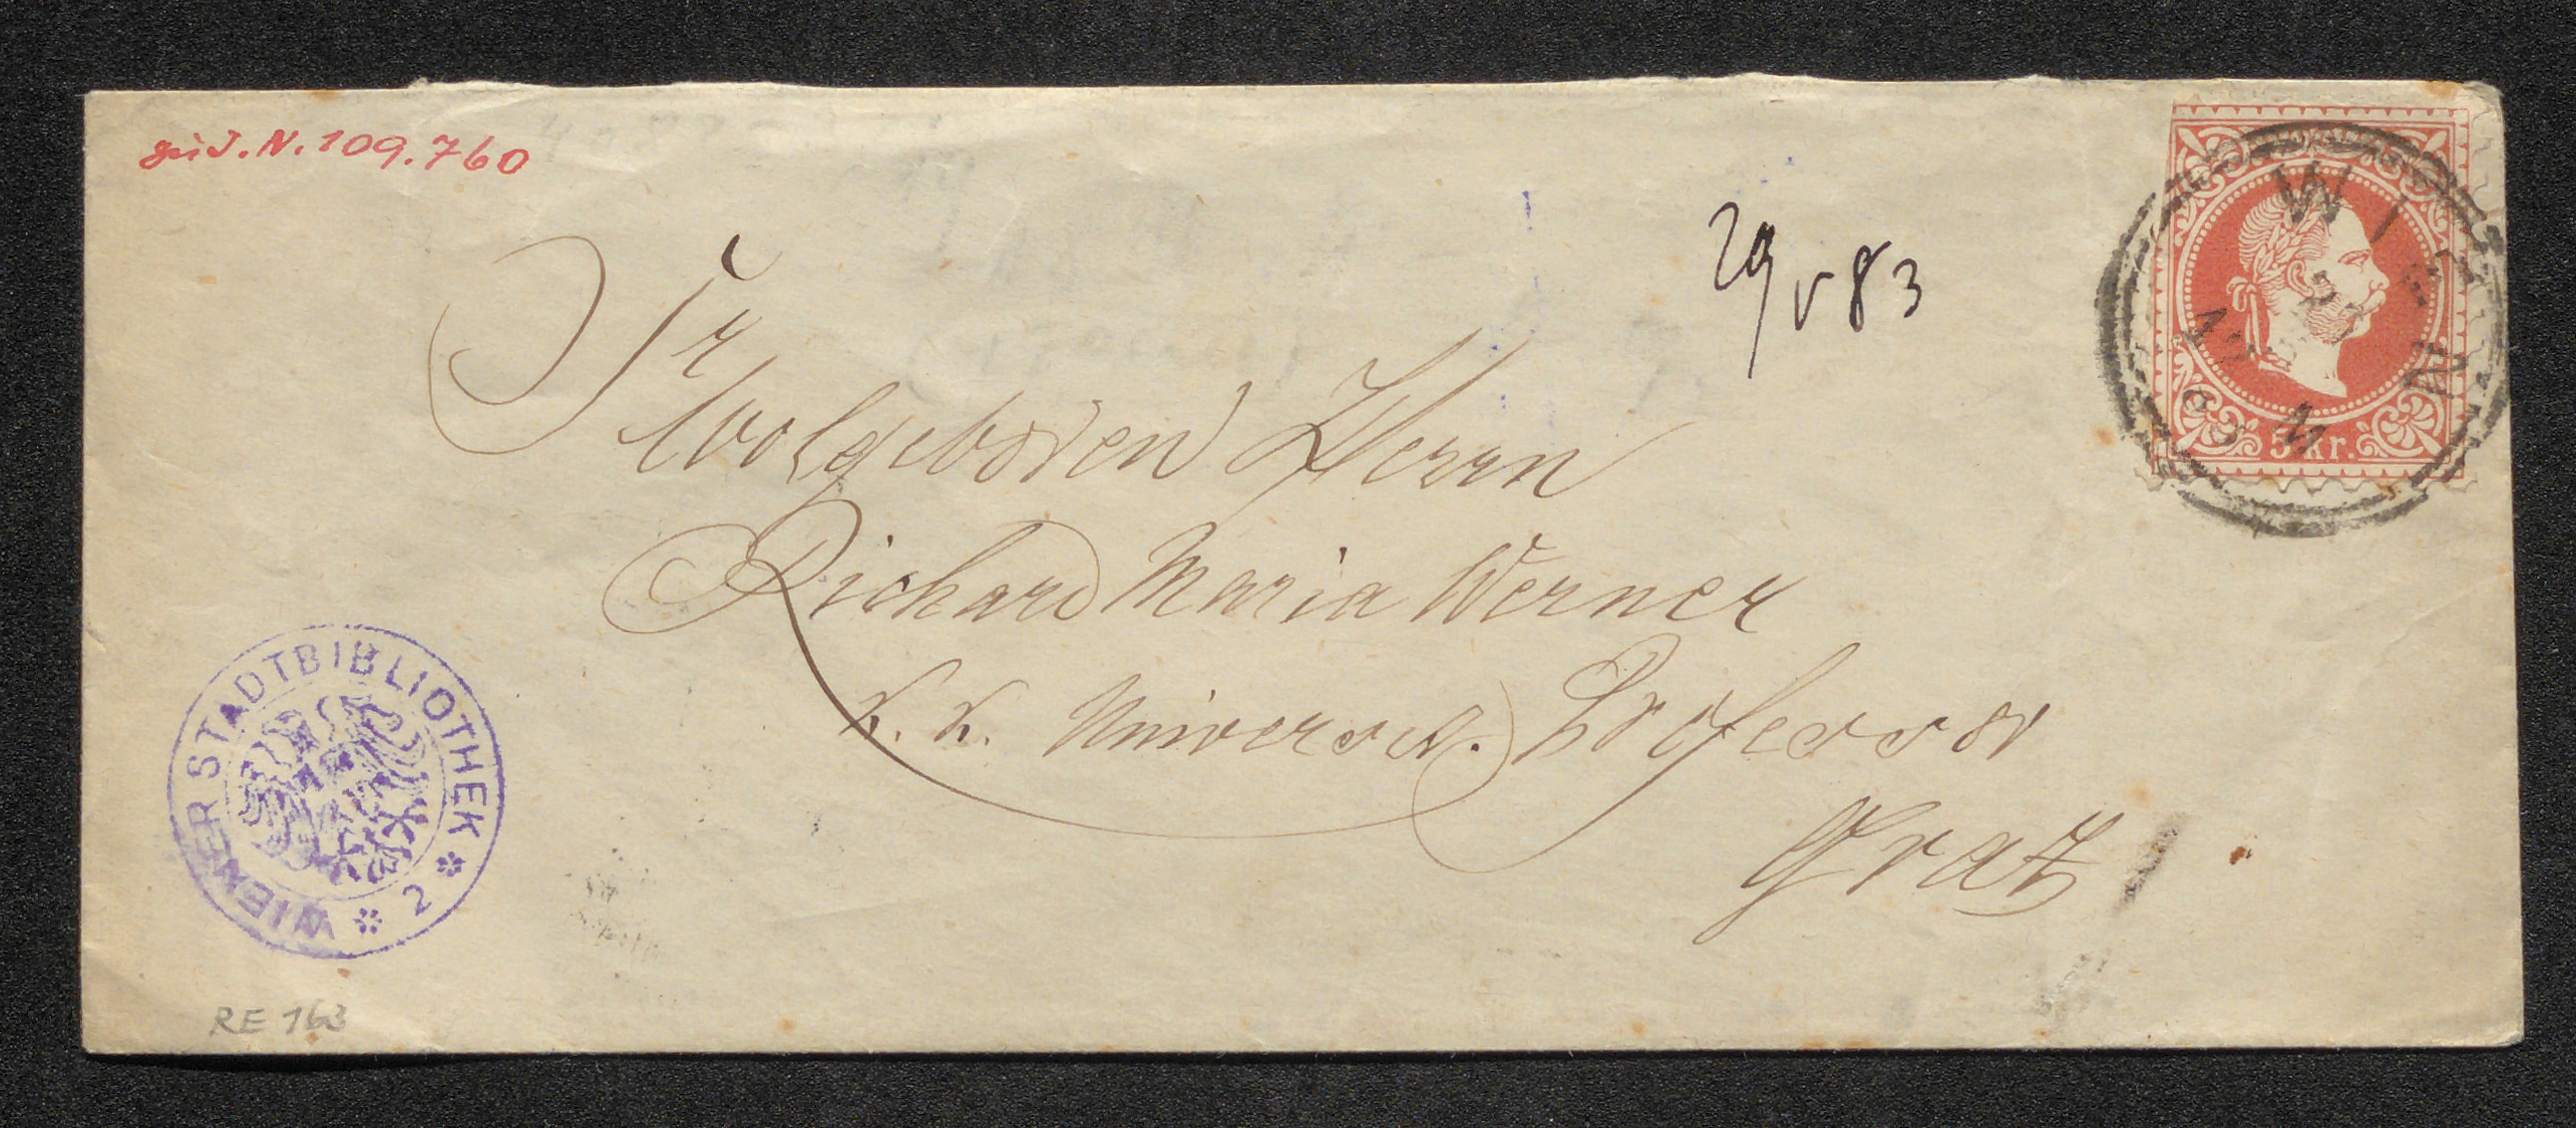 zu J.N. 109.760
29/V 83
Sr
Wolgeboren Herrn
Richard Maria Werner
k. k. Universit. Professor
Gratz
WIEN
5 kr.
WIENER STADTBIBLIOTHEK * 2 *
RE 163